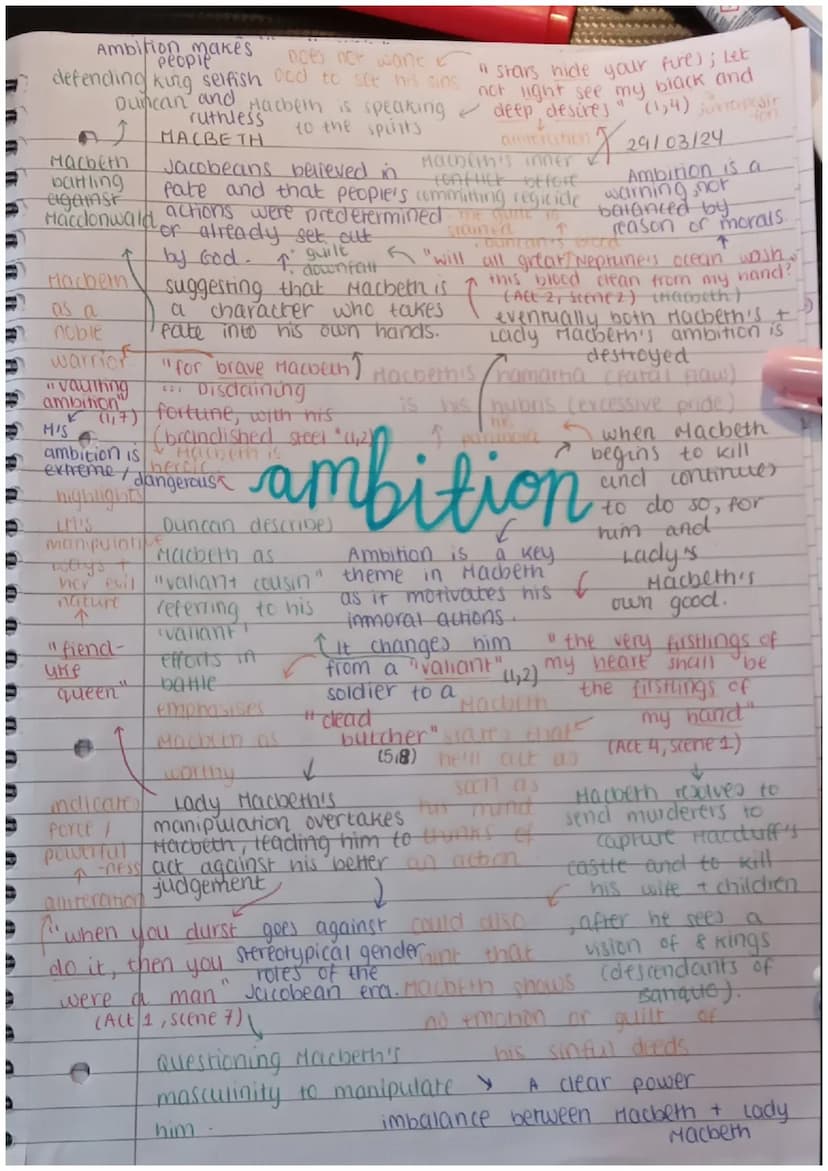 Ambition makes
people
selfish
and
ruthless
does not want
God to see his sins
"stars hide your fires; Let
not light see my black and
deep desires" (1,4)
juxtaposit
ion
defending king
Duncan
Macbeth is speaking
to the spirits
MACBETH
29/03/24
Macbeth
battling
against
Macdonwald
Jacobeans believed in
fate and that people's
actions were predetermined
or already set out
by God.
guilt
downfall
Macbeth's inner
conflict before
committing regicide
Ambition is a
warning not
balanced by
reason or morals
"will all great Neptune's ocean wash
this blood clean from my hand?"
(Act 2, Scene 2) (Macbeth)
suggesting that Macbeth is
a character who takes
fate into his own hands.
eventually both Macbeth's +
Lady Macbeth's ambition is
destroyed
Macbeth
as a
noble
warrior
"for brave Macbeth
... Disdaining
fortune, with his
brandished steel" (1,2)
Macbeth is
heroic
Macbeth's hamartia (fatal flaw)
is his hubris (excessive pride)
"vaulting
ambition"
(1,7)
M's
ambition is
extreme / dangerous
ambition
when Macbeth
begins to kill
and continues
to do so, for
him and
Lady's
Macbeth's
own good.
highlights
LM's
manipulative
ways +
her evil
nature
"fiend-
like
queen"
Duncan describes
Macbeth as
"valiant cousin"
referring to his
'valiant'
efforts in
battle
emphasises
Macbeth as
worthy
Ambition is a key
theme in Macbeth
as it motivates his
immoral actions.
It changes him
from a "valiant" (1,2)
soldier to a
"dead
butcher"
(5,8)
"the very firstlings of
my heart shall be
the firstlings of
my hand"
(Act 4, Scene 1)
Macbeth
states that
he'll act as
soon as
his mind
thinks of
an action
Macbeth resolves to
send murderers to
capture Macduff's
castle and to kill
his wife + children
, after he sees a
vision of 8 kings
(descendants of
Banquo).
Lady Macbeth's
manipulation overtakes
Macbeth, leading him to
act against his better
judgement
indicates
force /
powerful
-ness
alliteration
"when you durst
do it, then you
were a man"
(Act 1, Scene 7)
goes against
stereotypical gender
roles of the
Jacobean era.
could also
hint that
Macbeth shows
no emotion or guilt of
his sinful deeds
questioning Macbeth's
masculinity to manipulate
him.
A clear power
imbalance between Macbeth + Lady
Macbeth